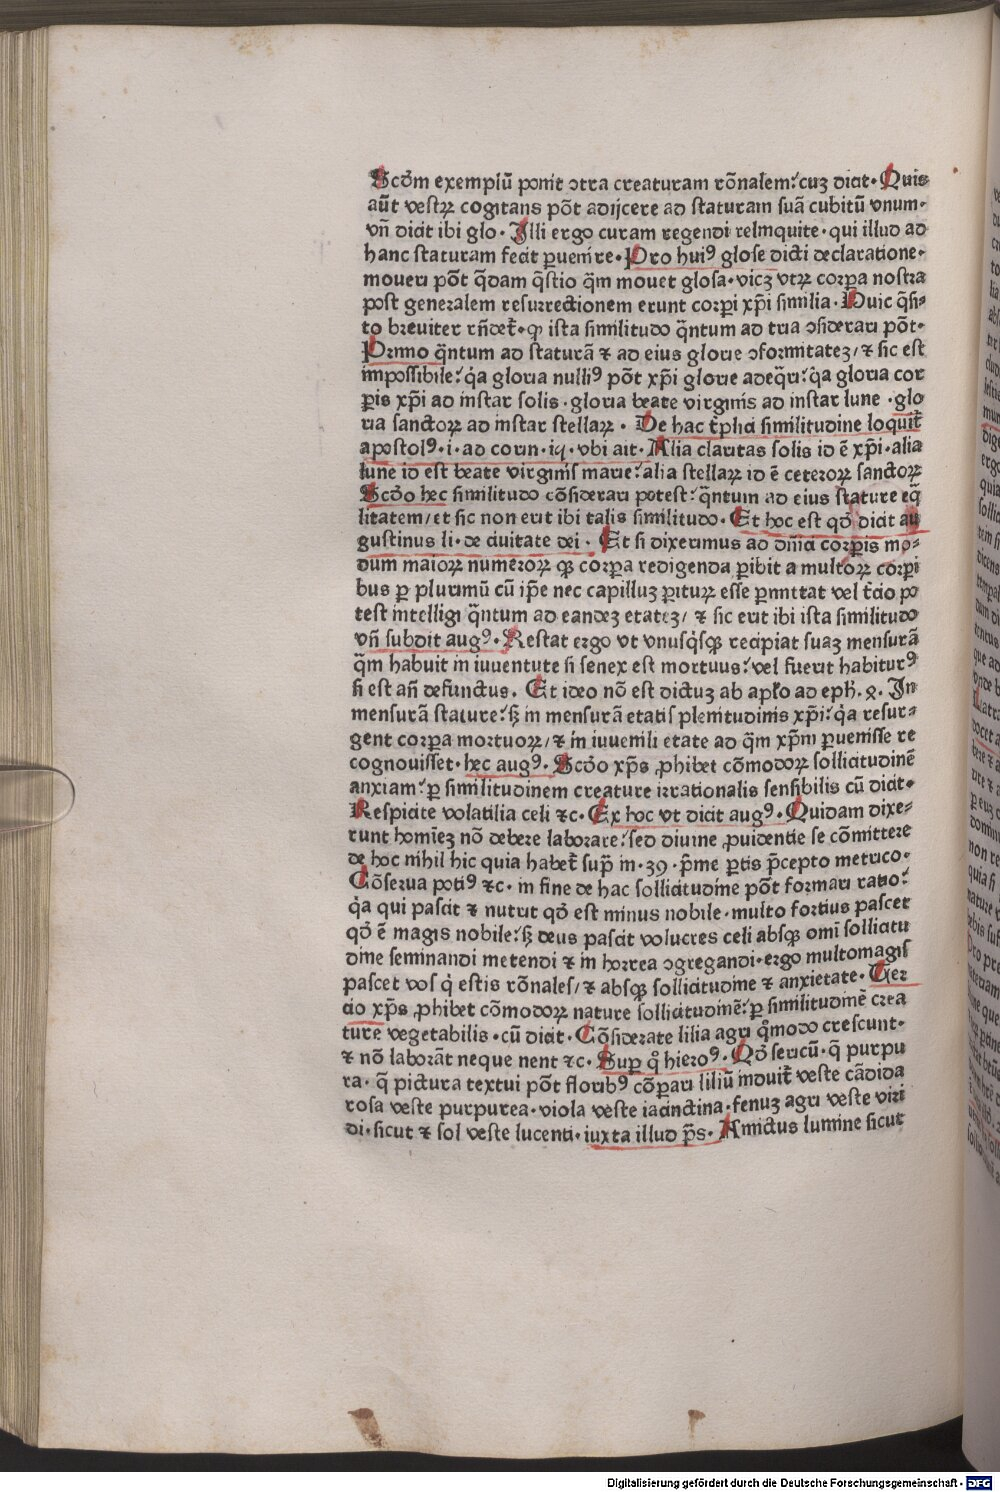 Scd̄m exemplū ponit ɔtra creaturam rōnalem: cuȝ dicit. Quis
aūt vestꝝ cogitans pōt adijcere ad staturam suā cubitū vnum.
vn̄ dicit ibi glo. Illi ergo curam regendi relinquite. qui illud ad
hanc staturam fecit ꝑuenire. Pro huiꝰ glose dicti declaratione.
moueri pōt q̄dam q̄stio q̄m mouet glosa. vicȝ vtꝝ corꝑa nostra
post generalem resurrectionem erunt corꝑi xp̄i similia. Huic q̄si-
to breuiter rn̄det̄. ꝙ ista similitudo q̄ntum ad tria ɔsiderari pōt.
Primo q̄ntum ad staturā ⁊ ad eius glorie ɔformitateȝ/ ⁊ sic est
impossibile: q̇a gloria nulliꝰ pōt xp̄i glorie adeq̄ri: q̇a gloria cor
ꝑis xp̄i ad instar solis. gloria beate virginis ad instar lune. glo
ria sanctoꝝ ad instar stellaꝝ. De hac t̄pħci similitudine loquit̄
apostolꝰ. i. ad corin. iꝗ. vbi ait. Alia claritas solis id ē xp̄i. alia
lune id est beate virginis marie: alia stellaꝝ id ē ceteroꝝ sanctoꝝ
Scd̄o hec similitudo cōsiderari potest: q̄ntum ad eius stature eq̄
litatem/ et sic non erit ibi talis similitudo. Et hoc est qd̄ dicit au
gustinus li. de ciuitate dei. Et si dixerimus ad dn̄ici corꝑis mo-
dum maioꝝ numeroꝝ qȝ corꝑa redigenda ꝑibit a multoꝝ corꝑi
bus ꝑ plurimū cū ip̄e nec capilluȝ ꝑituꝝ esse ꝑmittat vel t̄cio po
test intelligi q̄ntum ad eandeȝ etateȝ/ ⁊ sic erit ibi ista similitudo
vn̄ subdit augꝰ. Restat ergo vt vnusq̇sqȝ recipiat suaȝ mensurā
q̄m habuit in iuuentute si senex est mortuus: vel fuerit habiturꝰ
si est an̄ defunctus. Et ideo nō est dictuȝ ab apło ad epħ. 8. In
mensurā stature: sȝ in mensurā etatis plenitudinis xp̄i: q̇a resur-
gent corꝑa mortuoꝝ/ ⁊ in iuuenili etate ad q̄m xp̄m ꝑuenisse re
cognouisset. hec augꝰ. Scd̄o xp̄s ꝓhibet cōmodoꝝ sollicitudinē
anxiam: ꝑ similitudinem creature irrationalis sensibilis cū dicit.
Respicite volatilia celi ⁊c. Ex hoc vt dicit augꝰ. Quidam dixe-
runt homieȝ nō debere laborare: sed diuine ꝓuidentie se cōmittere
de hoc nihil hic quia habet̄ sup̄ in. 39. p̄me ꝑtis p̄cepto metrico.
Cōserua potiꝰ ⁊c. in fine de hac sollicitudine pōt formari ratio:
q̇a qui pascit ⁊ nutrit qd̄ est minus nobile. multo fortius pascet
qd̄ ē magis nobile: sȝ deus pascit volucres celi absqȝ omi sollicitu
dine seminandi metendi ⁊ in horrea ɔgregandi. ergo multomagis
pascet vos q̇ estis rōnales/ ⁊ absqȝ sollicitudine ⁊ anxietate. Ter
cio xp̄s ꝓhibet cōmodoꝝ nature sollicitudinē: ꝑ similitudinē crea
ture vegetabilis. cū dicit. Cōsiderate lilia agri qͦmodo crescunt.
⁊ nō laborāt neque nent ⁊c. Suꝑ qͦ hieroꝰ. Qd̄ sericū. q̄ purpu
ra. q̄ pictura textui pōt floribꝰ cōpari liliū induit̄ veste cādida
rosa veste purpurea. viola veste iacinctina. fenuȝ agri veste viri
di. sicut ⁊ sol veste lucenti. iuxta illud p̄s. Amictus lumine sicut
Digitalisierung gefördert durch die Deutsche Forschungsgemeinschaft - DFG